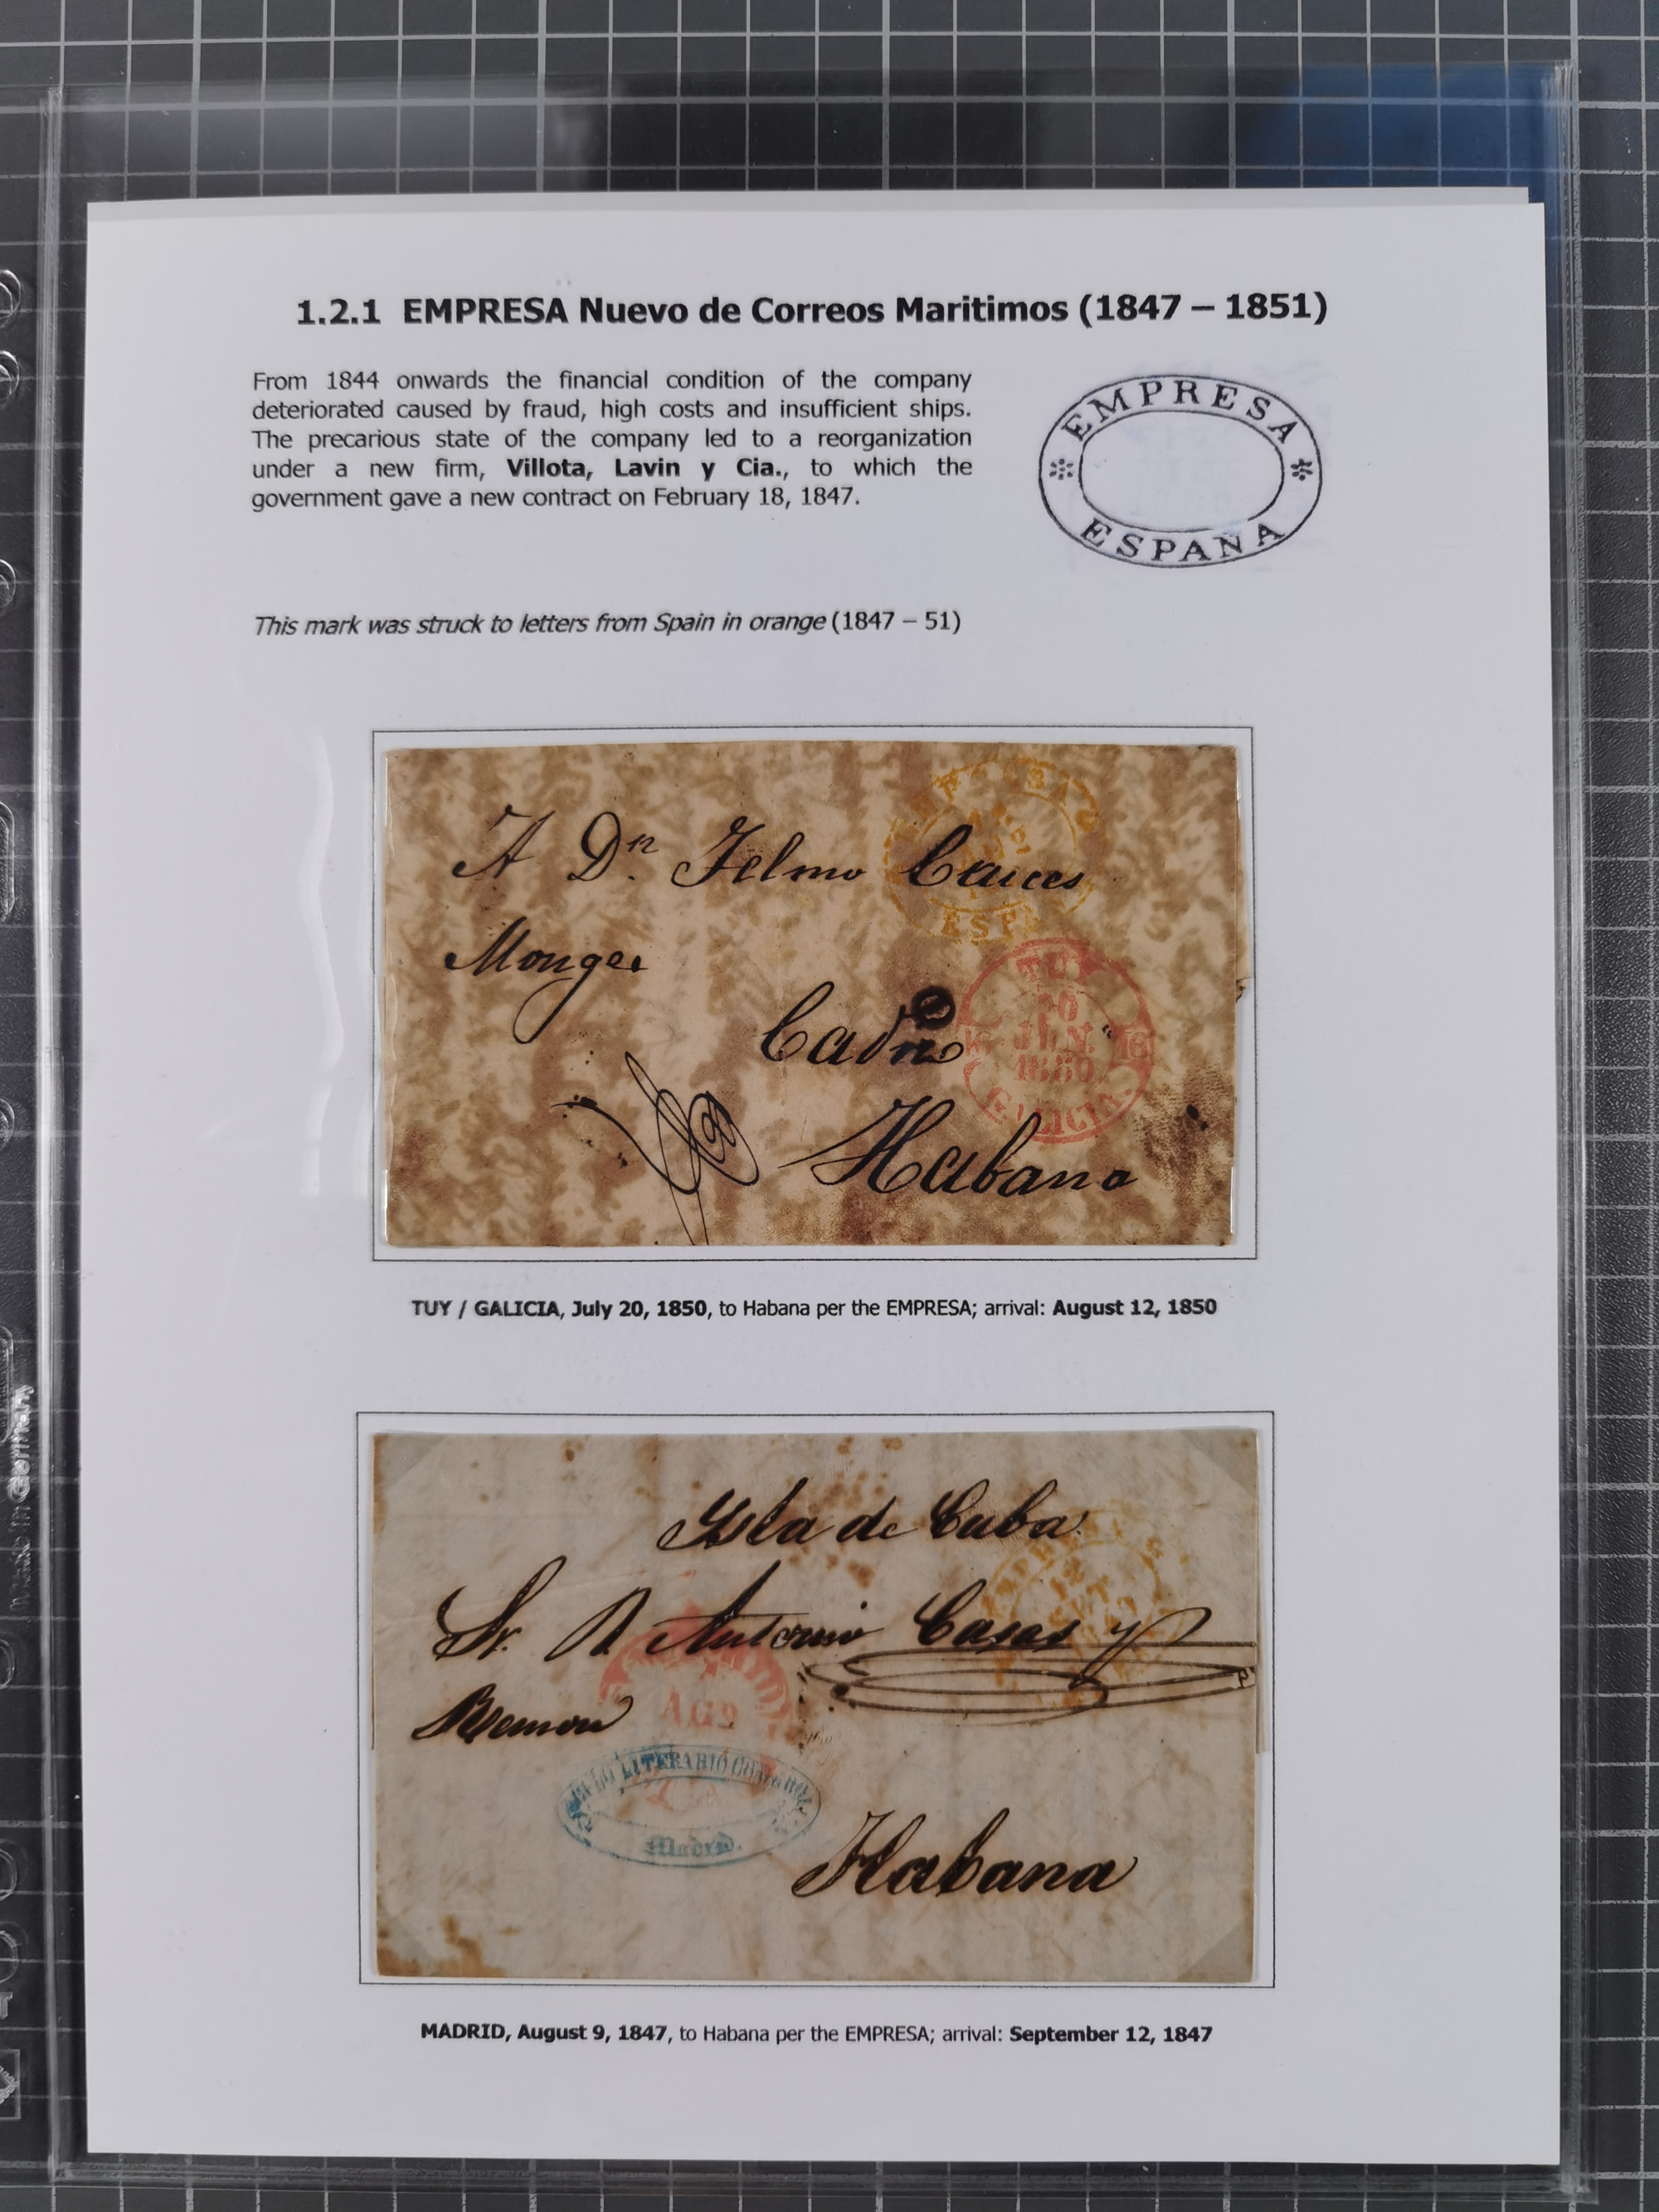 1.2.1 EMPRESA Nuevo de Correos Maritimos (1847 – 1851)
From 1844 onwards the financial condition of the company
deteriorated caused by fraud, high costs and insufficient ships.
The precarious state of the company led to a reorganization
under a new firm, Villota, Lavin y Cia., to which the
government gave a new contract on February 18, 1847.
EMPRESA
ESPAÑA
This mark was struck to letters from Spain in orange (1847 – 51)
A Dn. Telmo
Monges
Habana
TUY
20
JUN.
1850
GALICIA.
TUY / GALICIA, July 20, 1850, to Habana per the EMPRESA; arrival: August 12, 1850
Isla de Cuba
Sr. D Antonio Casas y
Remon
12
AG 9
LITERARIO
Madrid.
Habana
MADRID, August 9, 1847, to Habana per the EMPRESA; arrival: September 12, 1847
Made in Germany